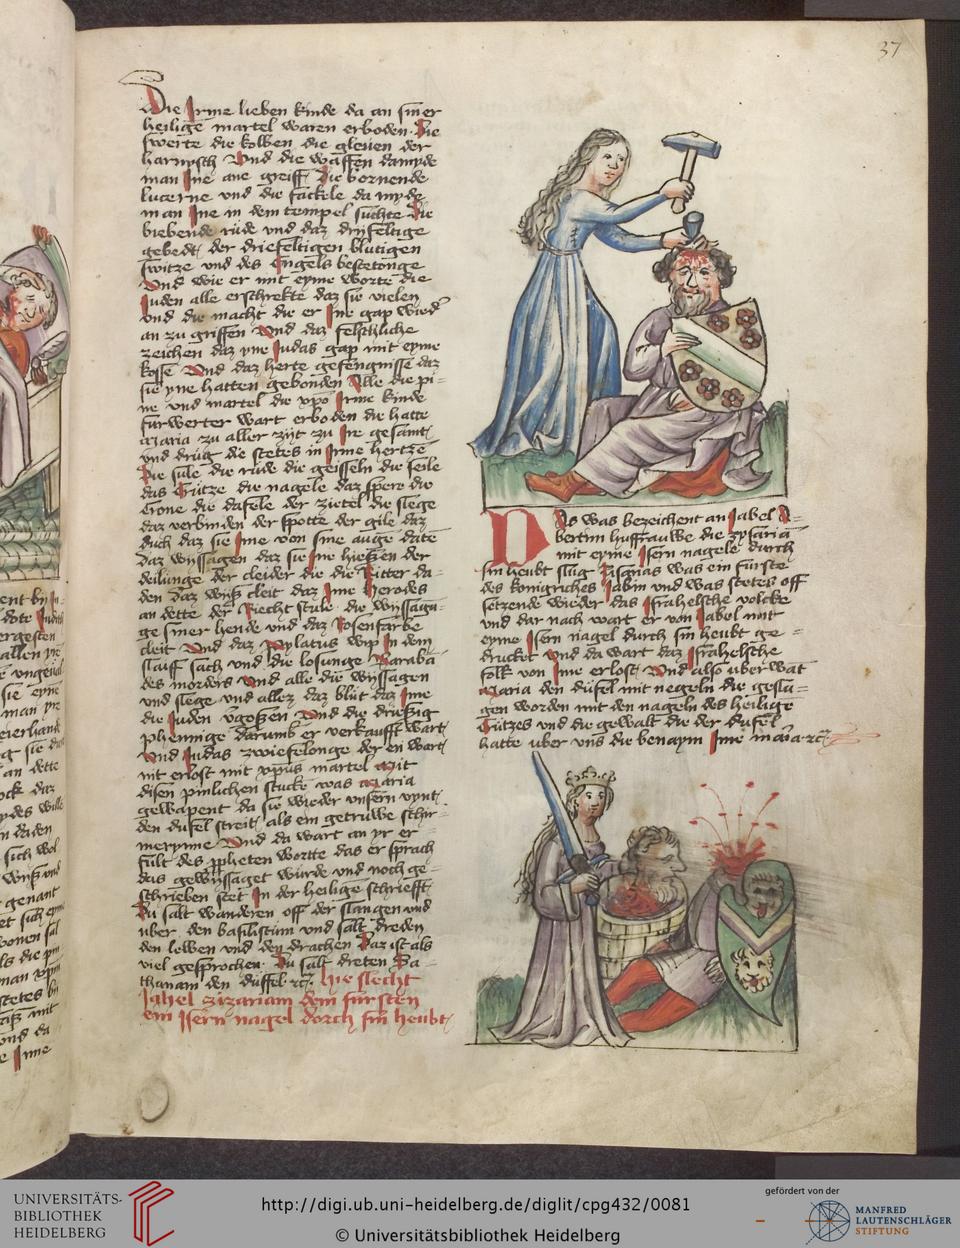 37
Die Irme lieben kinde da an siner
heilige martel waren erboden Die
swerte die kolben die glenen der
harnysch Vnd die waffen damyde
man Ine ane greiff Die bornende
lucerne vnd die fackele da myde
man Ine in dem tempel suchte Die
biebende rüde vnd daz dryfeltige
gebedt der driefeltigen blutigen
switze vnd des Engels bestetonge
Vnd wie er mit eyme worte die
Juden alle erschrekte daz sie vielen
vnd die macht die er Ine gap wied
an zu griffen Vnd daz felschliche
zeichen daz yne Judas gap mit eyme
kosse Vnd daz herte gefengnisse daz
sie yne hatten gebonden Alle die pi-
ne vnd martel die xpo Irme kinde
furwerter wart erboden die hatte
Maria zu aller zijt zu Ire gesamt
vnd drüg die stetes in Irme hertze
Die sule die rüde die geisseln die seile
das Crütze die nagele daz spere die
Crone die dafele der zittel die slege
daz verbinden der spotte der gile daz
düch daz sie Ime von sine auge date
daz wyssagen daz sie Ine hießen der
deilunge der cleider die die Ritter da-
den daz wyß cleit daz Ime Herodes
an dette der Riecht stule die wyssagu-
ge siner hende vnd daz Rosenfarbe
cleit Vnd daz pylatus wip In dem
slaiff sach vnd die losunge Baraba
des morders Vnd alle die wyssagen
vnd slege vnd allez daz blüt daz Ime
die Juden vgoßen Vnd die drießig
phennige darumb er verkaufft wart
Vnd Judas zwiefelonge der en wart
nit erlost mit xpus martel Mit
disen pinlichen stucke was Maria
gewapent da sie wieder vnsern vynt
den dufel streit als ein getruwe schir-
merynne Vnd da wart an yr er-
fult des ppheten wortte das er sprach
das gewyssaget würde vnd noch ge-
schrieben stet In der heilige schriefft
Du salt wanderen off der slangen vnd
uber den basiliscum vnd salt dreden
den lewen vnd den drachen Daz ist als
viel gesprochen Du salt dreten Sa-
thanam den düffel rc. hie slecht
Jahel zizariam dem fursten
ein Isern nagel dorch sin heubt
Das was bezeichent an Jabel A-
bertinn huffrauwe die zysaria
mit eyme Isern nagele durch
sin heubt slüg Sisarias was ein fürste
des konigriches Jabin vnd was stetes off
setzende wieder das Israhelsche volcke
vnd dar nach wart er von Jabel mit
eyme Isern nagel durch sin heubt ge-
drucket vnd da wart daz Israhelsche
folk von Ime erlost Vnd also uberwat
Maria den düfel mit negeln die geslа-
gen worden mit den nageln des heilige
Crützes vnd die gewalt die der dufel
hatte uber vns die benaym Ime maria rc.
UNIVERSITÄTS-
BIBLIOTHEK
HEIDELBERG
http://digi.ub.uni-heidelberg.de/diglit/cpg432/0081
© Universitätsbibliothek Heidelberg
gefördert von der
MANFRED
LAUTENSCHLÄGER
STIFTUNG